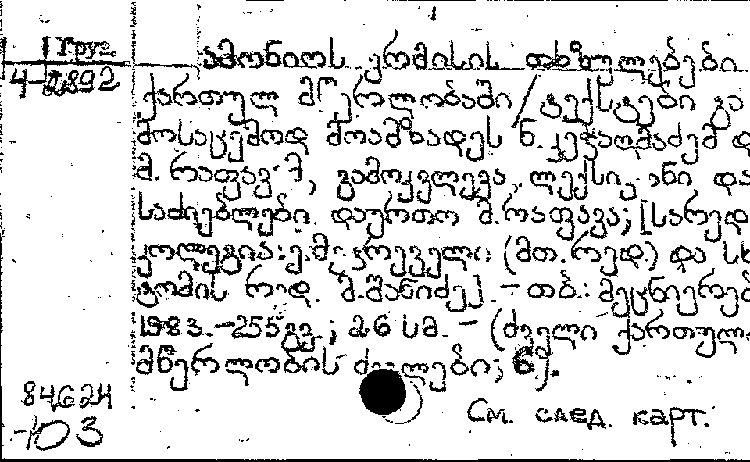 Груз.
4-2892
ამონიოს ერმისის თხზულებები
ქართულ მწერლობაში / ტექსტები გა
მოსაცემად მოამზადეს ნ. კეჭაღმაძემ დ
მ. რაფავამ, გამოკვლევა, ლექსიკონი და
საძიებლები დაურთო მ. რაფავამ; [სარედ
კოლეგია: ე. მეტრეველი (მთ. რედ.) და სხ
ტომის რედ. მ. შანიძე]. - თბ.: მეცნიერებ
1983. - 255 გვ.; 26 სმ. - (ძველი ქართული
მწერლობის ძეგლები; 6).
84Г2Н
-103
См. след. карт.